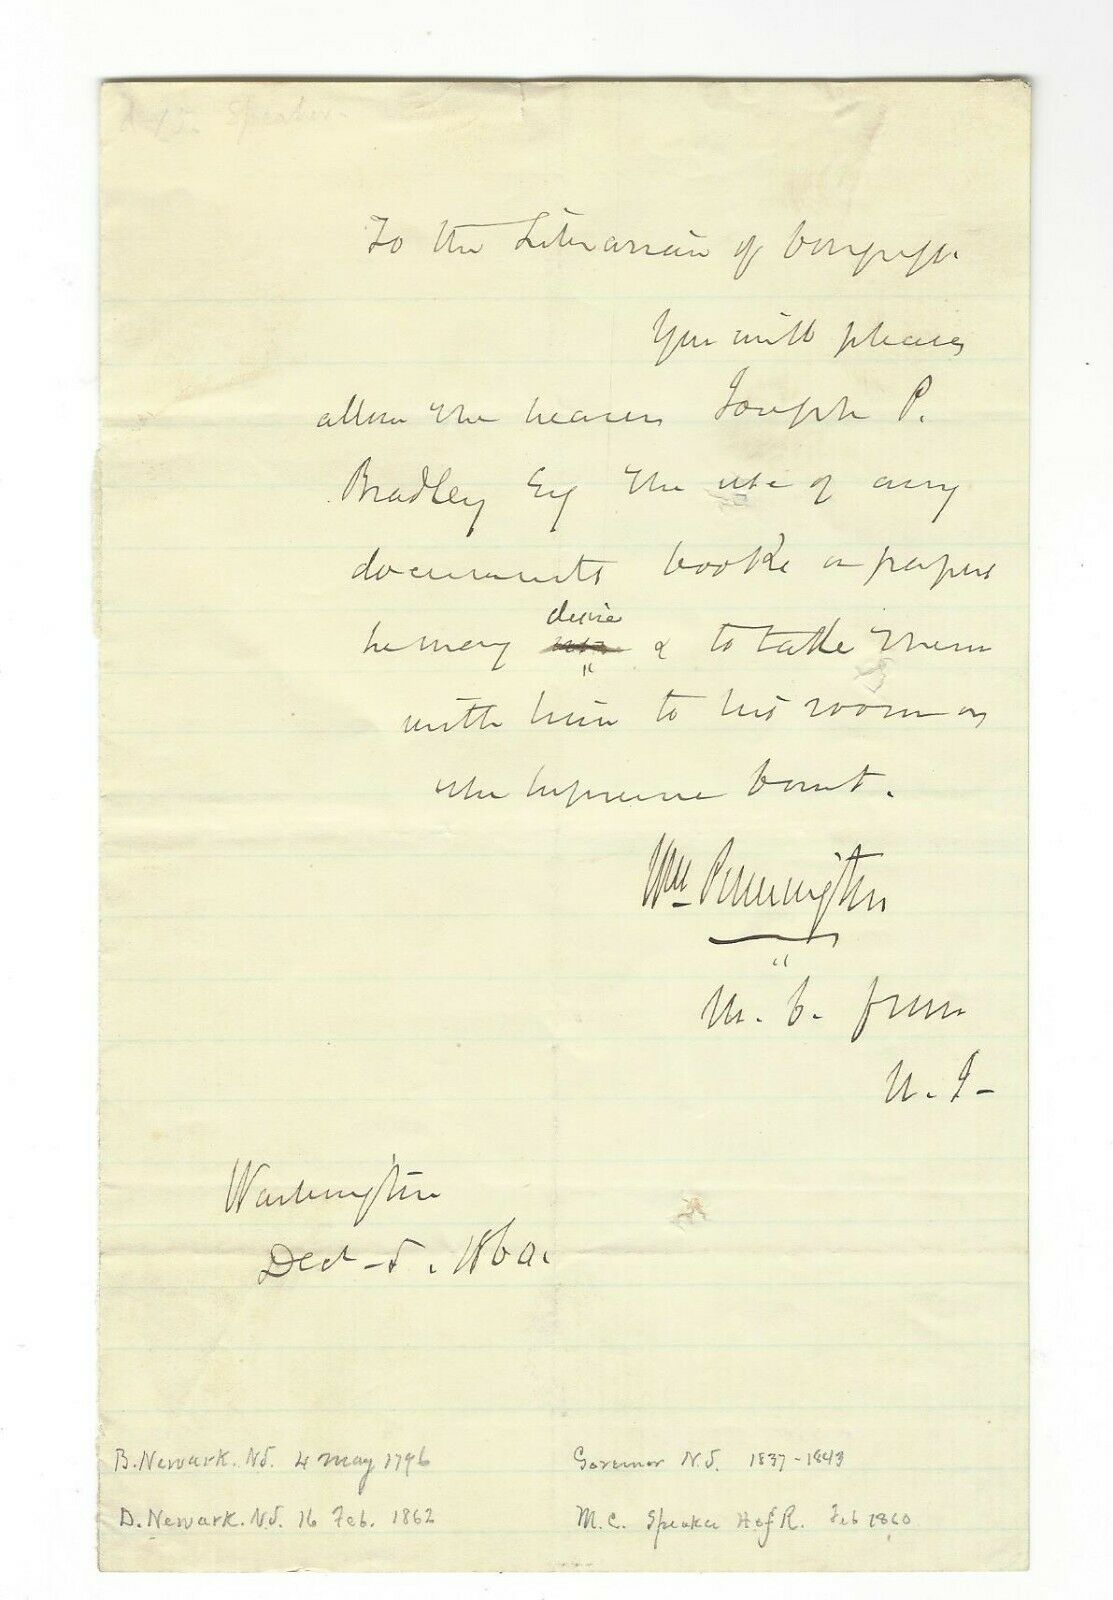 Speaker.
To the Librarian of Congress.
You will please
allow the bearer Joseph P.
Bradley Esq the use of any
documents books or papers
he may desire & to take them
with him to his room or
the Supreme Court.
Wm Pennington
M. C. from
N. J-
Washington
Dec 5. 1860.
B. Newark. NJ. 4 May 1796
Governor N.J. 1837-1843
D. Newark. NJ. 16 Feb. 1862
M.C. Speaker H of R. Feb 1860